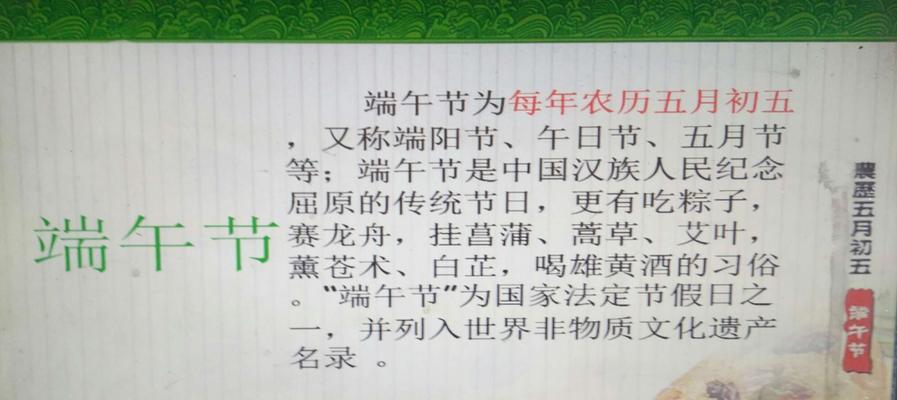 端午节
端午节为每年农历五月初五
，又称端阳节、午日节、五月节
等；端午节是中国汉族人民纪念
屈原的传统节日，更有吃粽子，
赛龙舟，挂菖蒲、蒿草、艾叶，
薰苍术、白芷，喝雄黄酒的习俗
。“端午节”为国家法定节假日之
一，并列入世界非物质文化遗产
名录 。
農歷五月初五
端午节